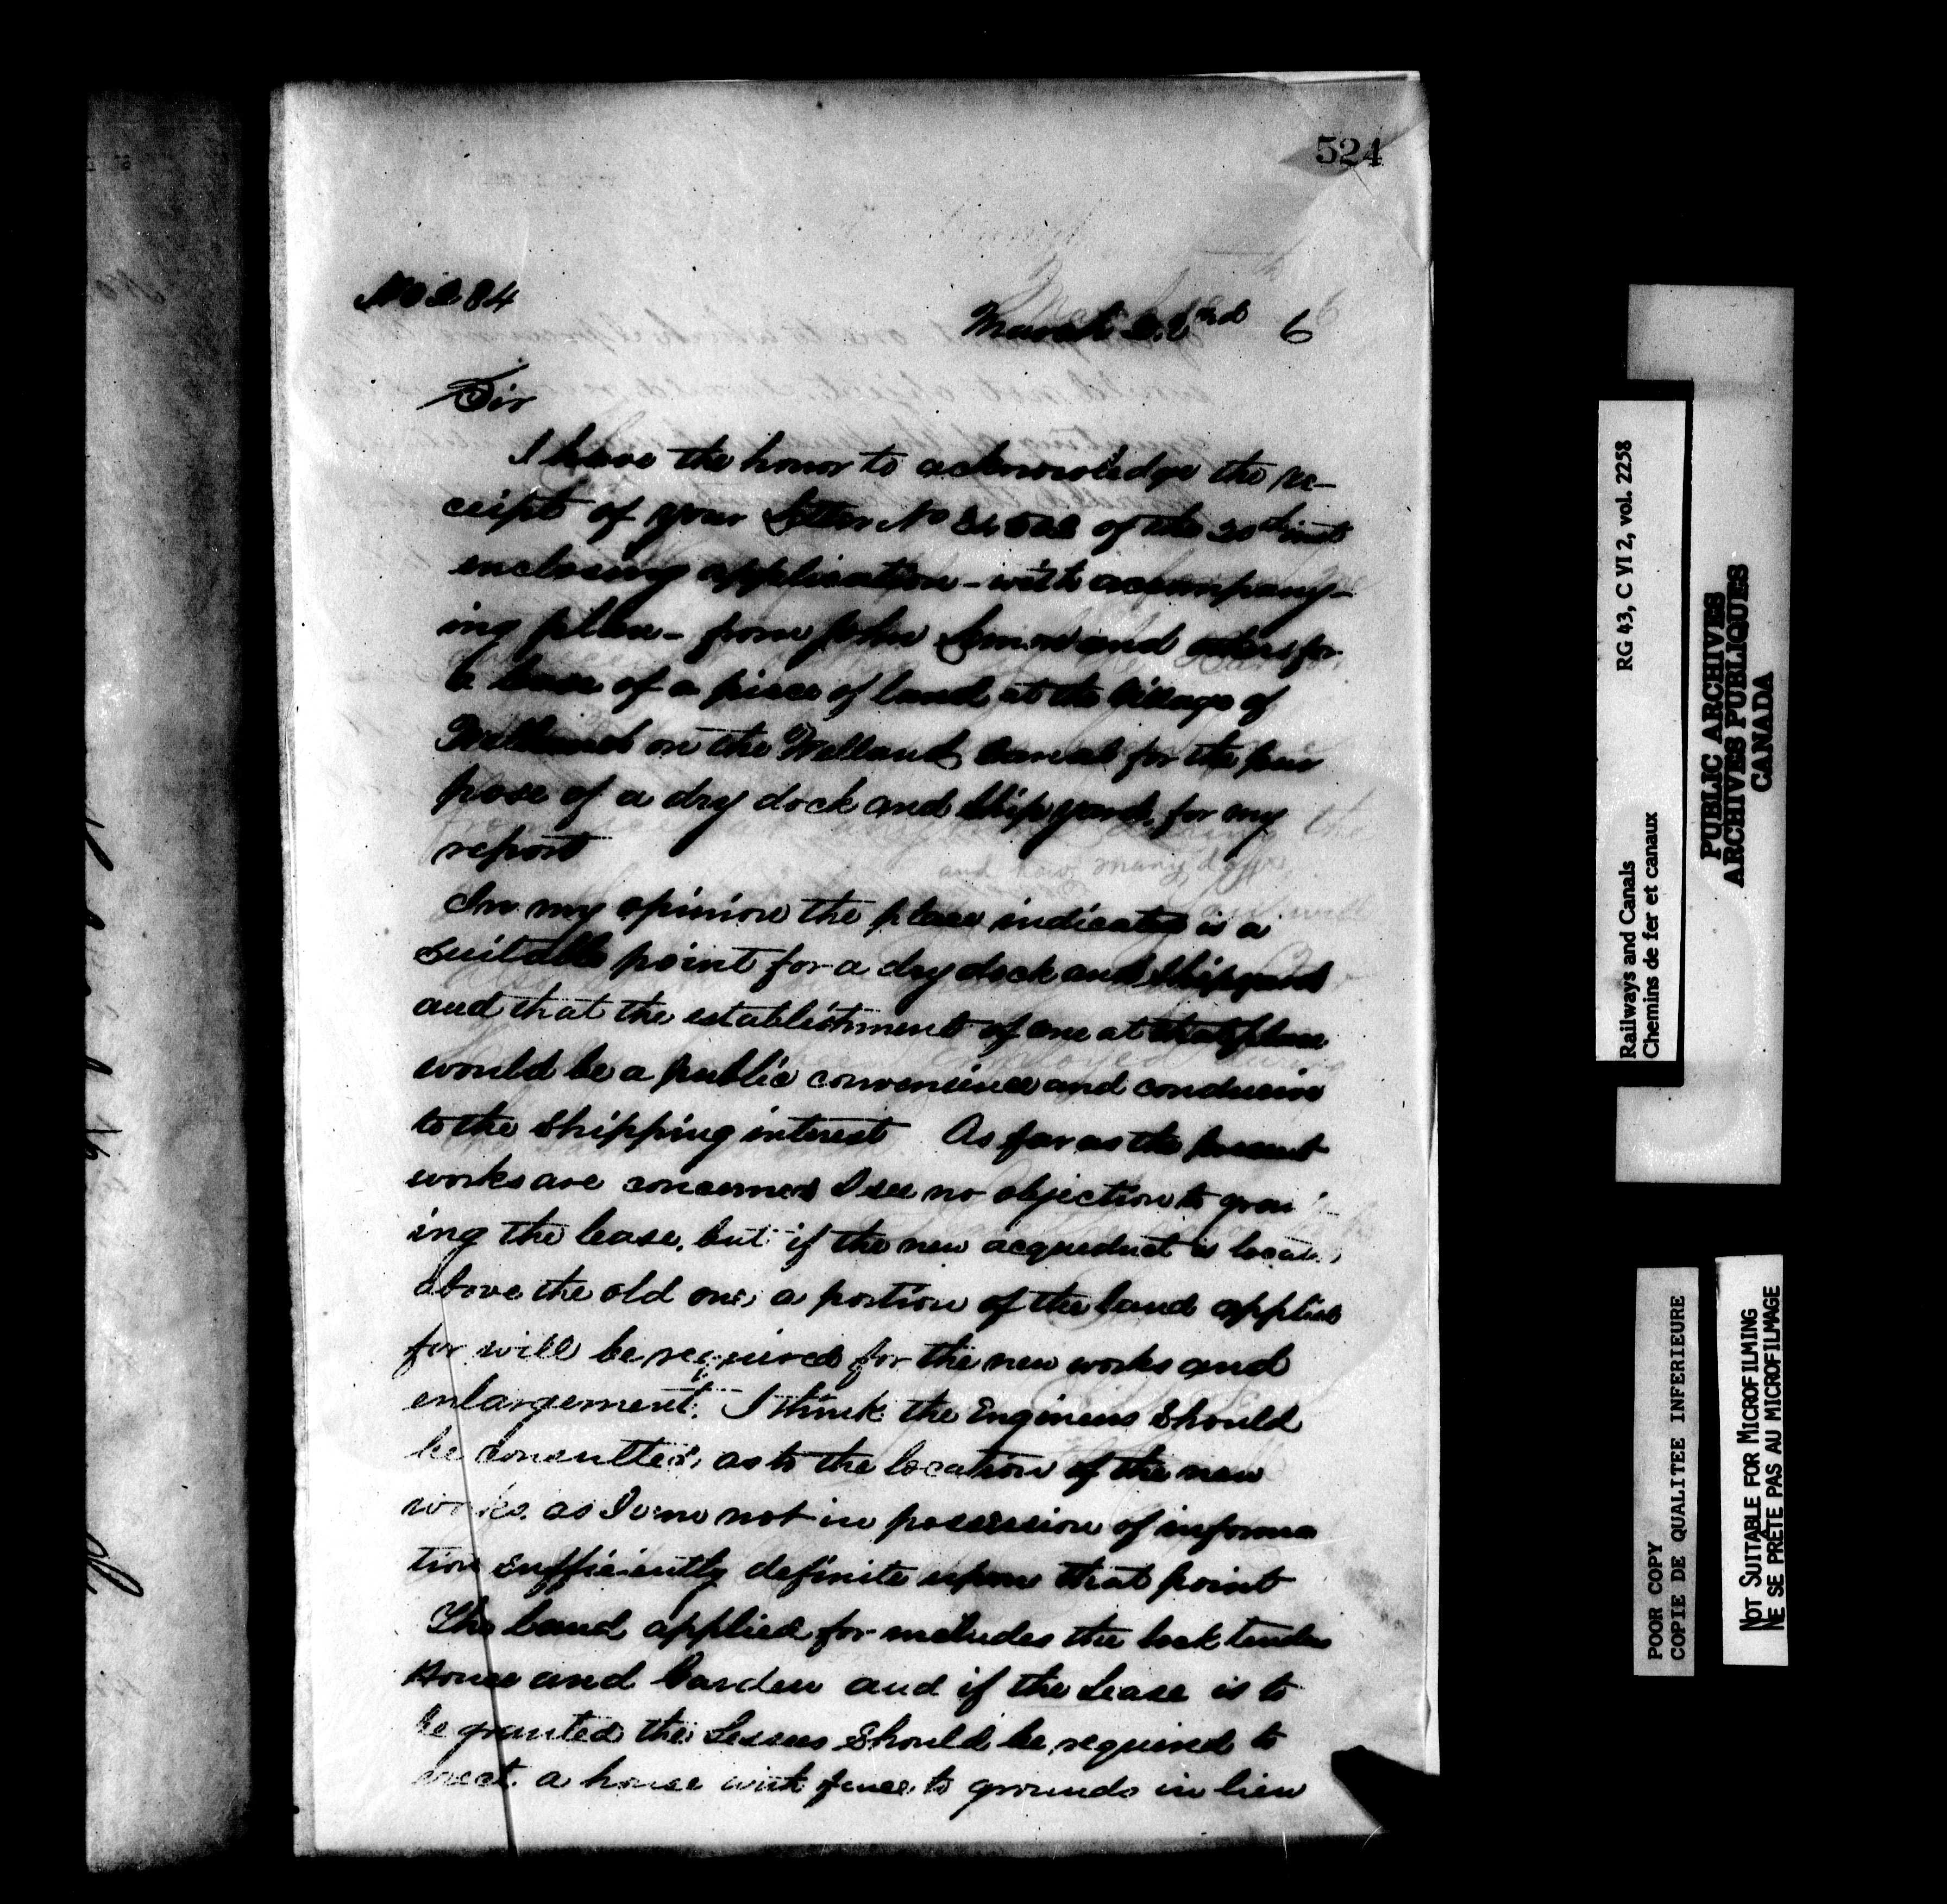 524
No 284
March 22nd 6
Sir
I have the honor to acknowledge the re-
ceipt of your Letter No of the 20th inst
enclosing application - with accompany-
ing plan - from John and others for
a lease of a piece of land at the Village of
Welland on the Welland Canal for the pur
pose of a dry dock and Ship yard, for my
report
In my opinion the place indicated is a
suitable point for a dry dock and Shipyard
and that the establishment of one at that place
would be a public convenience and conducive
to the Shipping interest As far as the present
works are concerned I see no objection to
ing the lease, but if the new acqueduct is
above the old one, a portion of the land applied
for will be required for the new works and
enlargement. I think the Engineers Should
be consulted, as to the location of the new
works, as I am not in possession of informa
tion sufficiently definite upon that point
The land applied for includes the lock tenders
House and Garden and if the Lease is to
be granted the Lessees Should be required to
erect a house with fence to grounds in lieu
Railways and Canals RG 43, C VI 2, vol. 2258
Chemins de fer et canaux
PUBLIC ARCHIVES
ARCHIVES PUBLIQUES
CANADA
POOR COPY
COPIE DE QUALITEE INFERIEURE
NOT SUITABLE FOR MICROFILMING
NE SE PRÊTE PAS AU MICROFILMAGE